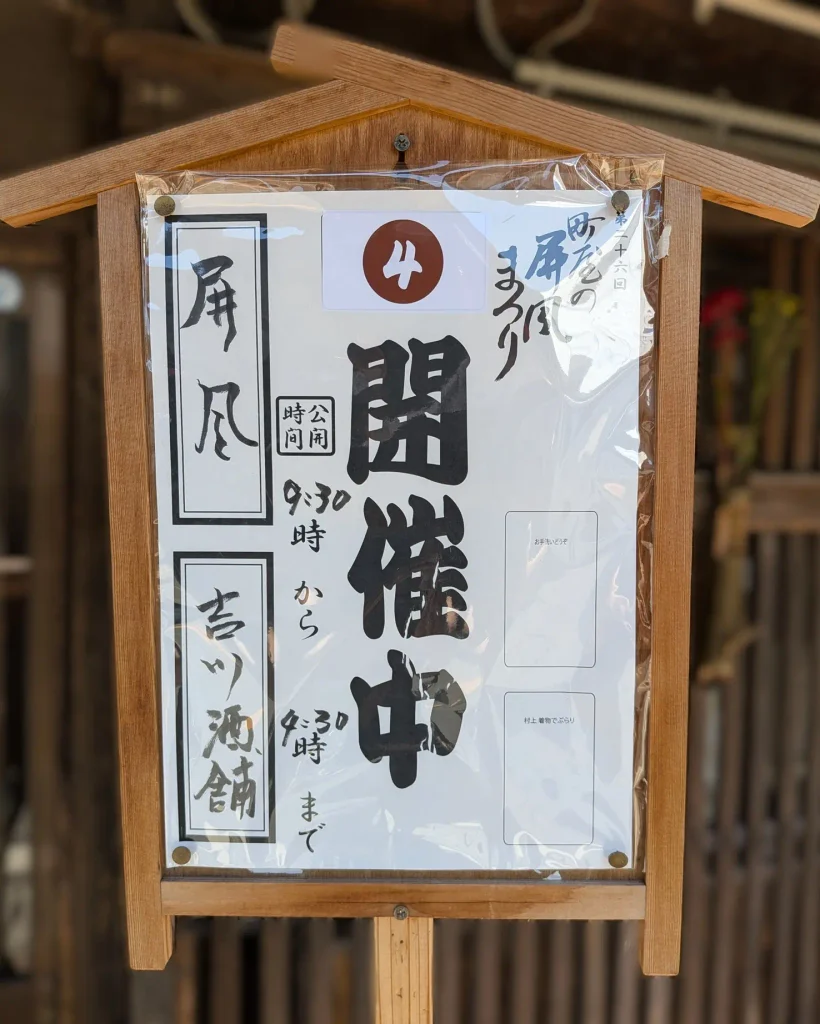 第二十六回
町屋の
屏風
まつり
4
開催中
お手洗いどうぞ
村上 着物でぶらり
公開
時間
9:30
時
から
4:30
時
まで
屏風
吉川酒舗